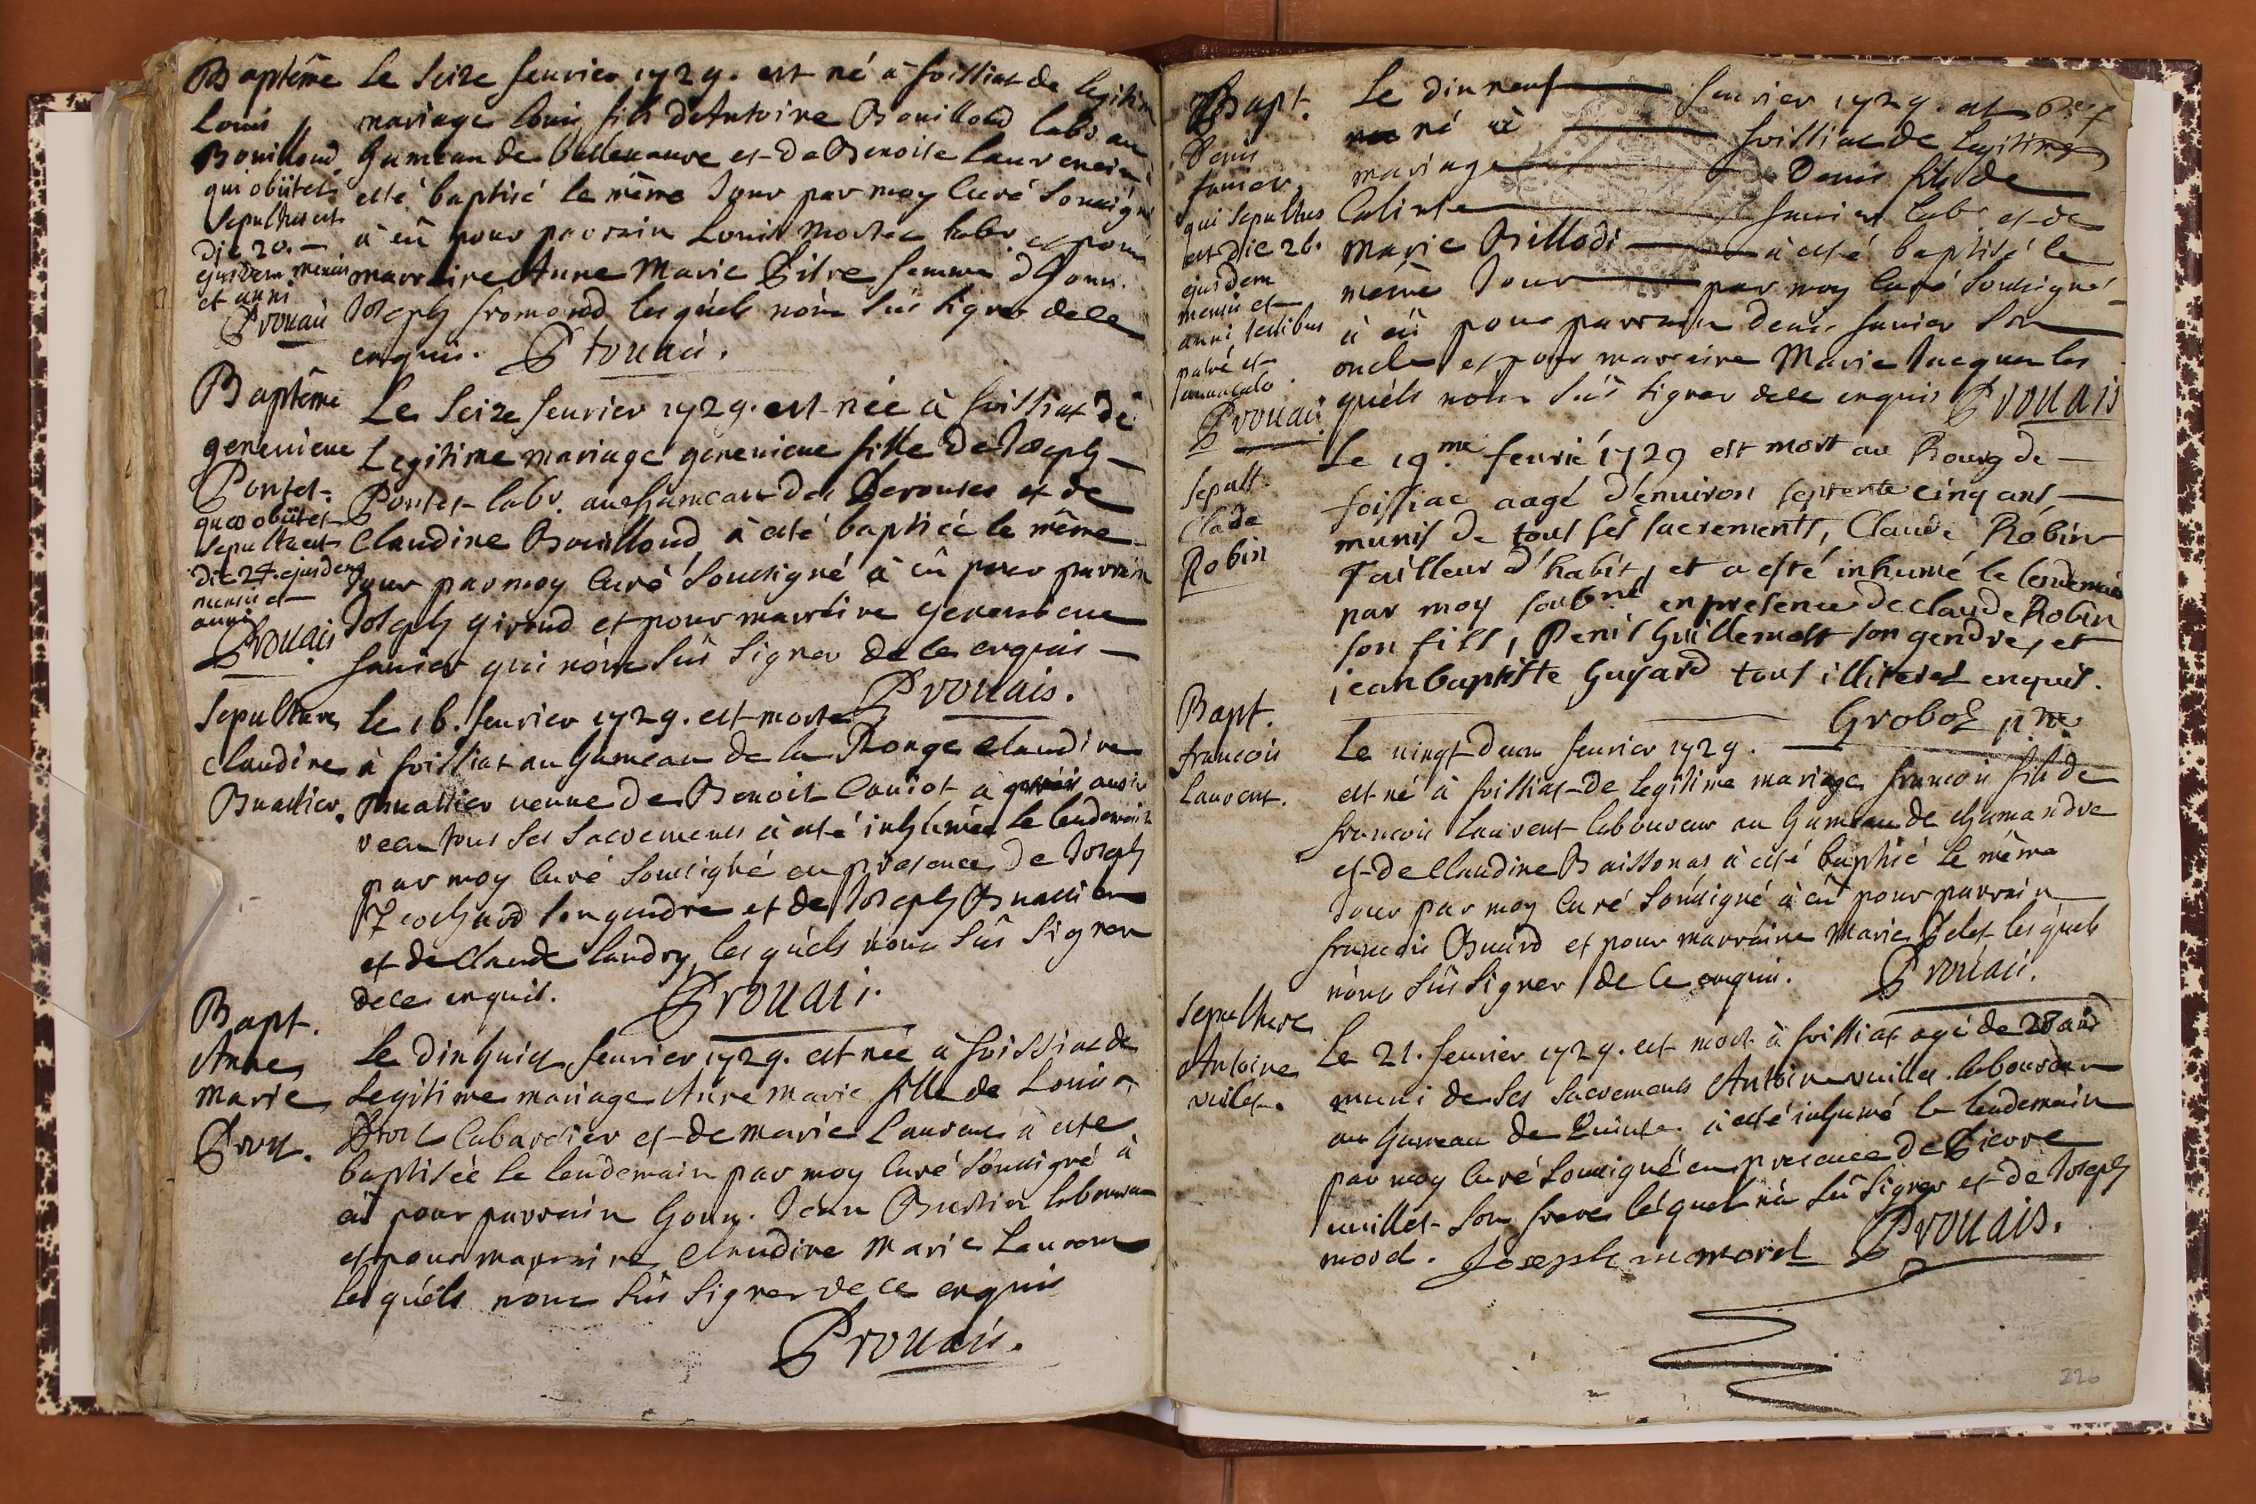 Baptême
Louis
Bouilloud
qui obiit et
sepultus est
die 20.
ejusdem mensis
et anni
Prouais
Le seize feurier 1729. est né à foissiat de legitime
mariage Louis fils d'Antoine Bouilloud labr au
hameau de et de Benoite
esté baptisé le même Jour par moy Curé Soussigné
à eû pour parrain Louis labr. et pour
marraine Anne Marie Pitre femme d'honn.
Joseph fromond lesquels n'ont sûs signer de ce
enquis. Prouais.
Baptême
geneuieue
Pontet.
quæ obiit et
sepulta est
die 24. ejusdem
mensis et
anni
Prouais
Le Seize feurier 1729. est née à foissiat de
Legitime mariage geneuieue fille de Joseph
Pontet labr. au hameau des et de
Claudine Bouilloud à esté baptisée le même
Jour par moy Curé Soussigné à eû pour parrain
Joseph giroud et pour marraine geneuieue
qui n'ont sûs signer de ce enquis
Prouais.
Sepulture
Claudine
Buattier.
Le 16. feurier 1729. est morte
à foissiat au hameau de la Ronge Claudine
Buattier ueuue de Benoit Caniot à
receu tous ses sacrements à esté inhumée le lendemain
par moy Curé Soussigné en presence de Joseph
son gendre et de Joseph Buattier
et de Claude Landry, lesquels n'ont sûs signer
de ce enquis. Prouais.
Bapt.
Anne
Marie
Le dixhuict feurier 1729. est née à foissiat de
Legitime mariage Anne Marie fille de Louis
Cabaretier et de Marie Laurent à esté
baptisée le lendemain par moy Curé Soussigné à
eû pour parrain honn. Jean laboureur
et pour marraine Claudine Marie Laurent
lesquels n'ont sûs signer de ce enquis
Prouais.
Bapt.
Denis
qui sepultus
est die 26.
ejusdem
mensis et
anni, testibus
patre et
Prouais.
Le dixneuf feurier 1729. est
né à foissiat de legitime
mariage Denis fils de
labr et de
Marie Billodi à esté baptisé le
même Jour par moy Curé Soussigné
à eû pour parrain Denis son
oncle et pour marraine Marie Jacquet les
quels n'ont sûs signer de ce enquis Prouais
Sepult.
Clade
Robin
Le 19.me feurié 1729 est mort au Bourg de
foissiac aagé d'enuiron septente cinq ans
munis de tous ses sacrements, Claude Robin
Tailleur d'habit, et a esté inhumé le lendemain
par moy soubné en presence de Claude Robin
son fils, Denis Guillemot son gendre, et
jean baptiste Guyard tous illiterés enquis.
Groboz
Bapt.
francois
Laurent.
Le uingt deux feurier 1729.
est né à foissiat de legitime mariage francois fils de
francois Laurent laboureur au hameau de chamandre
et de Claudine Baissonas à esté baptisé le même
Jour par moy Curé Soussigné à eû pour parrain
francois Buard et pour marraine Marie Pelet lesquels
n'ont sûs signer de ce enquis. Prouais.
Sepulture
Antoine
uuillet.
Le 21. feurier 1729. est mort à foissiat agé de 28 ans
muni de ses sacrements Antoine uuillet laboureur
au hameau de à esté inhumé le lendemain
par moy Curé Soussigné en presence de Pierre
uuillet son frere lequel n'a sû signer et de Joseph
morel. Joseph morel Prouais.
220